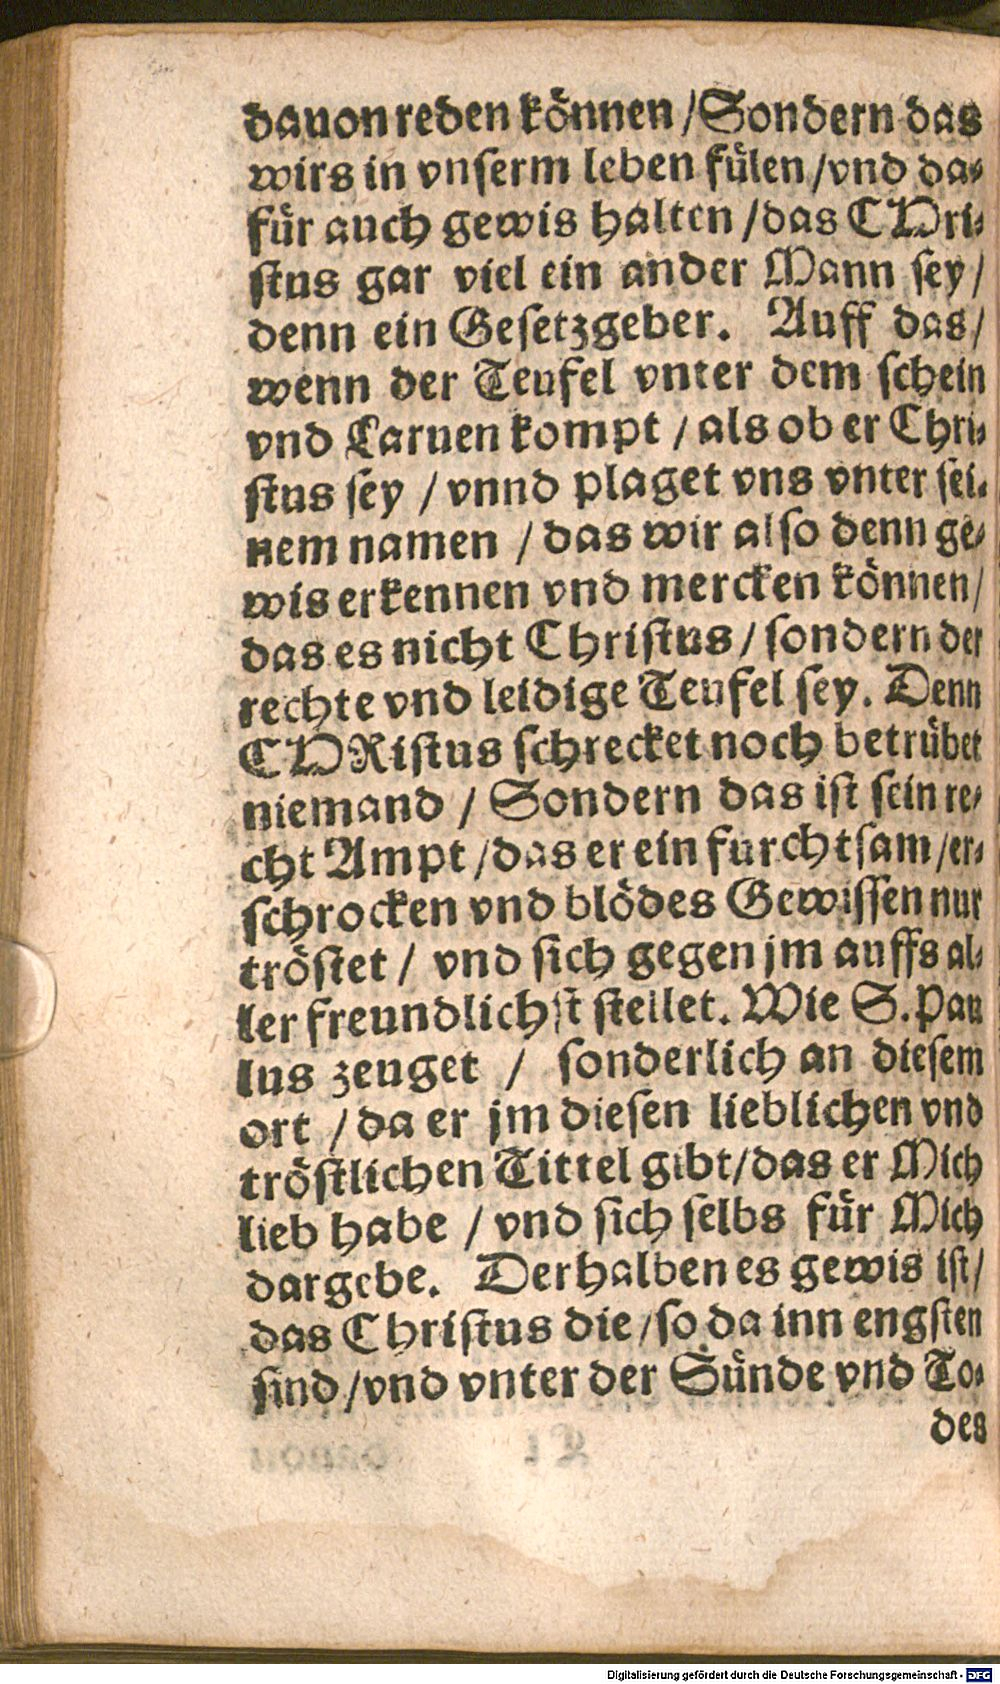 dauon reden können / Sondern das
wirs in vnserm leben fülen / vnd da-
für auch gewis halten / das CHri-
stus gar viel ein ander Mann sey /
denn ein Gesetzgeber. Auff das /
wenn der Teufel vnter dem schein
vnd Laruen kompt / als ob er Chri-
stus sey / vnnd plaget vns vnter sei-
nem namen / das wir also denn ge-
wis erkennen vnd mercken können /
das es nicht Christus / sondern der
rechte vnd leidige Teufel sey. Denn
CHRistus schrecket noch betrübet
niemand / Sondern das ist sein re-
cht Ampt / das er ein furchtsam / er-
schrocken vnd blödes Gewissen nur
tröstet / vnd sich gegen jm auffs al-
ler freundlichst stellet. Wie S. Pau
lus zeuget / sonderlich an diesem
ort / da er jm diesen lieblichen vnd
tröstlichen Tittel gibt / das er Mich
lieb habe / vnd sich selbs für Mich
dargebe. Derhalben es gewis ist /
das Christus die / so da inn engsten
sind / vnd vnter der Sünde vnd To-
des
Digitalisierung gefördert durch die Deutsche Forschungsgemeinschaft - DFG